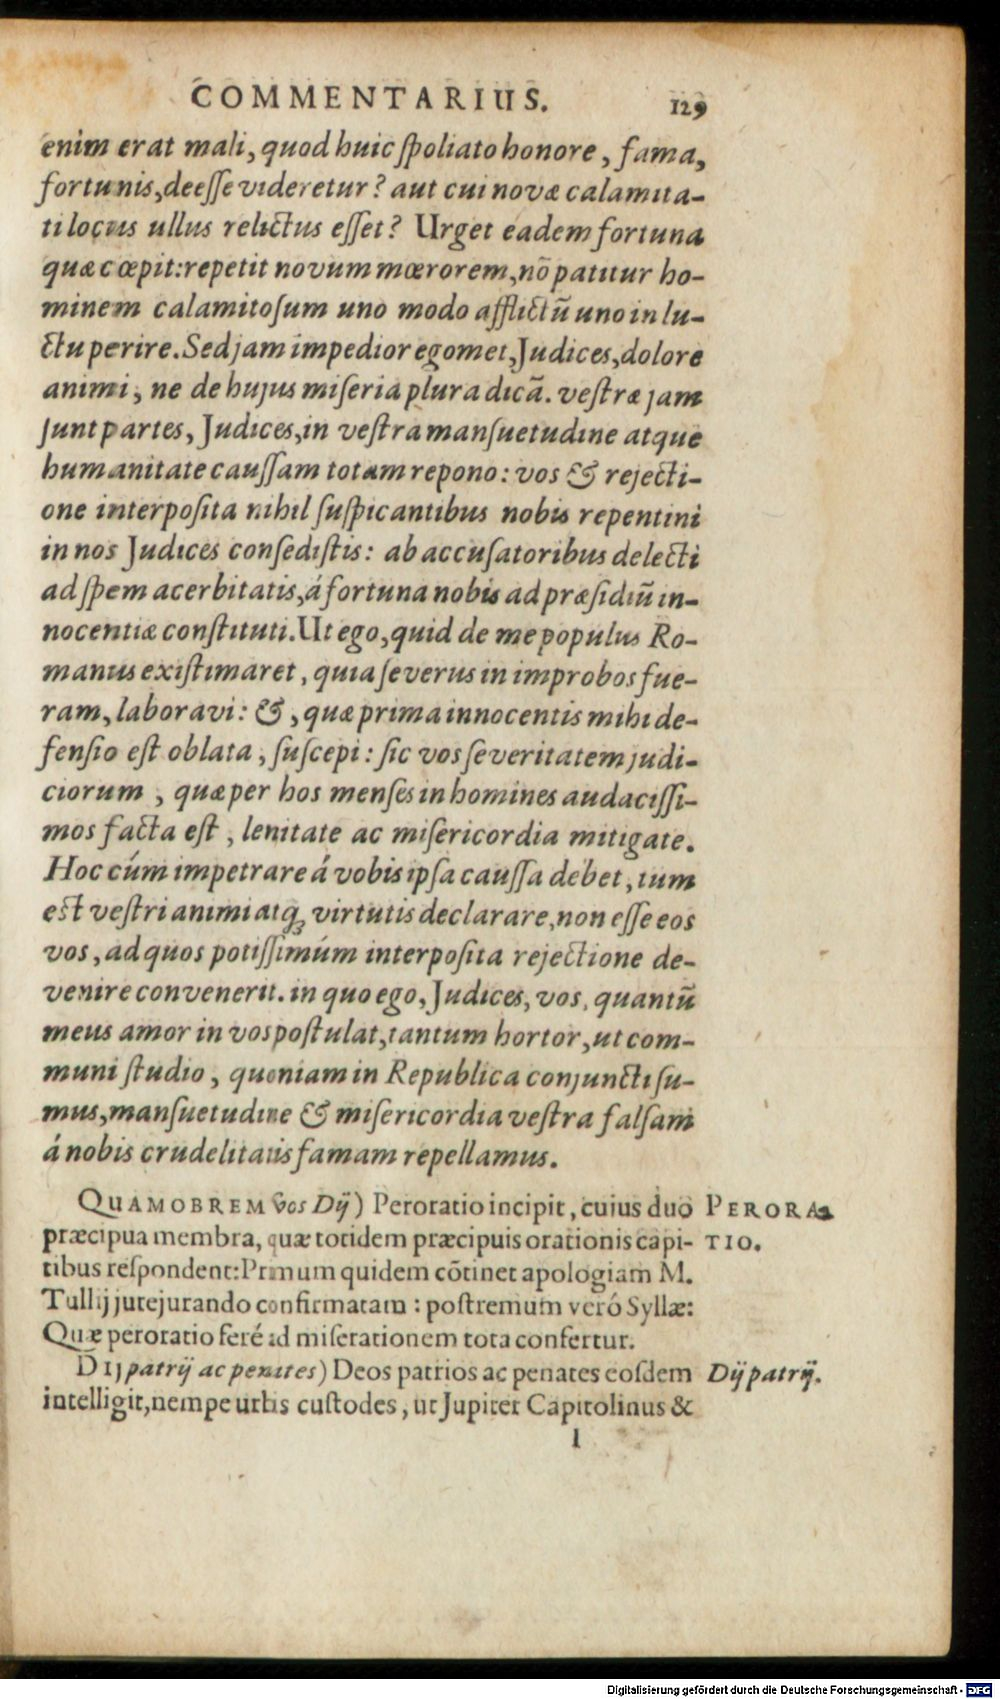 COMMENTARIUS. 129
enim erat mali, quod huic ſpoliato honore, fama,
fortunis, deeſſe videretur? aut cui novæ calamita-
ti locus ullus relictus eſſet? Urget eadem fortuna
quæ cœpit: repetit novum mœrorem, nō patitur ho-
minem calamitoſum uno modo afflictū uno in lu-
ctu perire. Sed jam impedior egomet, Judices, dolore
animi, ne de hujus miſeria plura dicā. veſtræ jam
ſunt partes, Judices, in veſtra manſuetudine atque
humanitate cauſſam totam repono: vos & rejecti-
one interpoſita nihil ſuſpicantibus nobis repentini
in nos Judices conſediſtis: ab accuſatoribus delecti
ad ſpem acerbitatis, á fortuna nobis ad præſidiū in-
nocentiæ conſtituti. Ut ego, quid de me populus Ro-
manus exiſtimaret, quia ſeverus in improbos fue-
ram, laboravi: &, quæ prima innocentis mihi de-
fenſio eſt oblata, ſuſcepi: ſic vos ſeveritatem judi-
ciorum, quæ per hos menſes in homines audaciſſi-
mos facta eſt, lenitate ac miſericordia mitigate.
Hoc cúm impetrare á vobis ipſa cauſſa debet, tum
est veſtri animi atq; virtutis declarare, non eſſe eos
vos, ad quos potiſſimúm interpoſita rejectione de-
venire convenerit. in quo ego, Judices, vos, quantū
meus amor in vos poſtulat, tantum hortor, ut com-
muni ſtudio, quoniam in Republica conjuncti ſu-
mus, manſuetudine & miſericordia veſtra falſam
á nobis crudelitatis famam repellamus.
QUAMOBREM vos Dij) Peroratio incipit, cuius duo PERORA-
præcipua membra, quæ totidem præcipuis orationis capi- TIO.
tibus reſpondent: Primum quidem cōtinet apologiam M.
Tullij jurejurando confirmatam: poſtremum veró Syllæ:
Quæ peroratio feré ad miſerationem tota confertur.
DIJ patrij ac penates) Deos patrios ac penates eoſdem Dij patrij.
intelligit, nempe urbis cuſtodes, ut Jupiter Capitolinus &
I
Digitalisierung gefördert durch die Deutsche Forschungsgemeinschaft - DFG